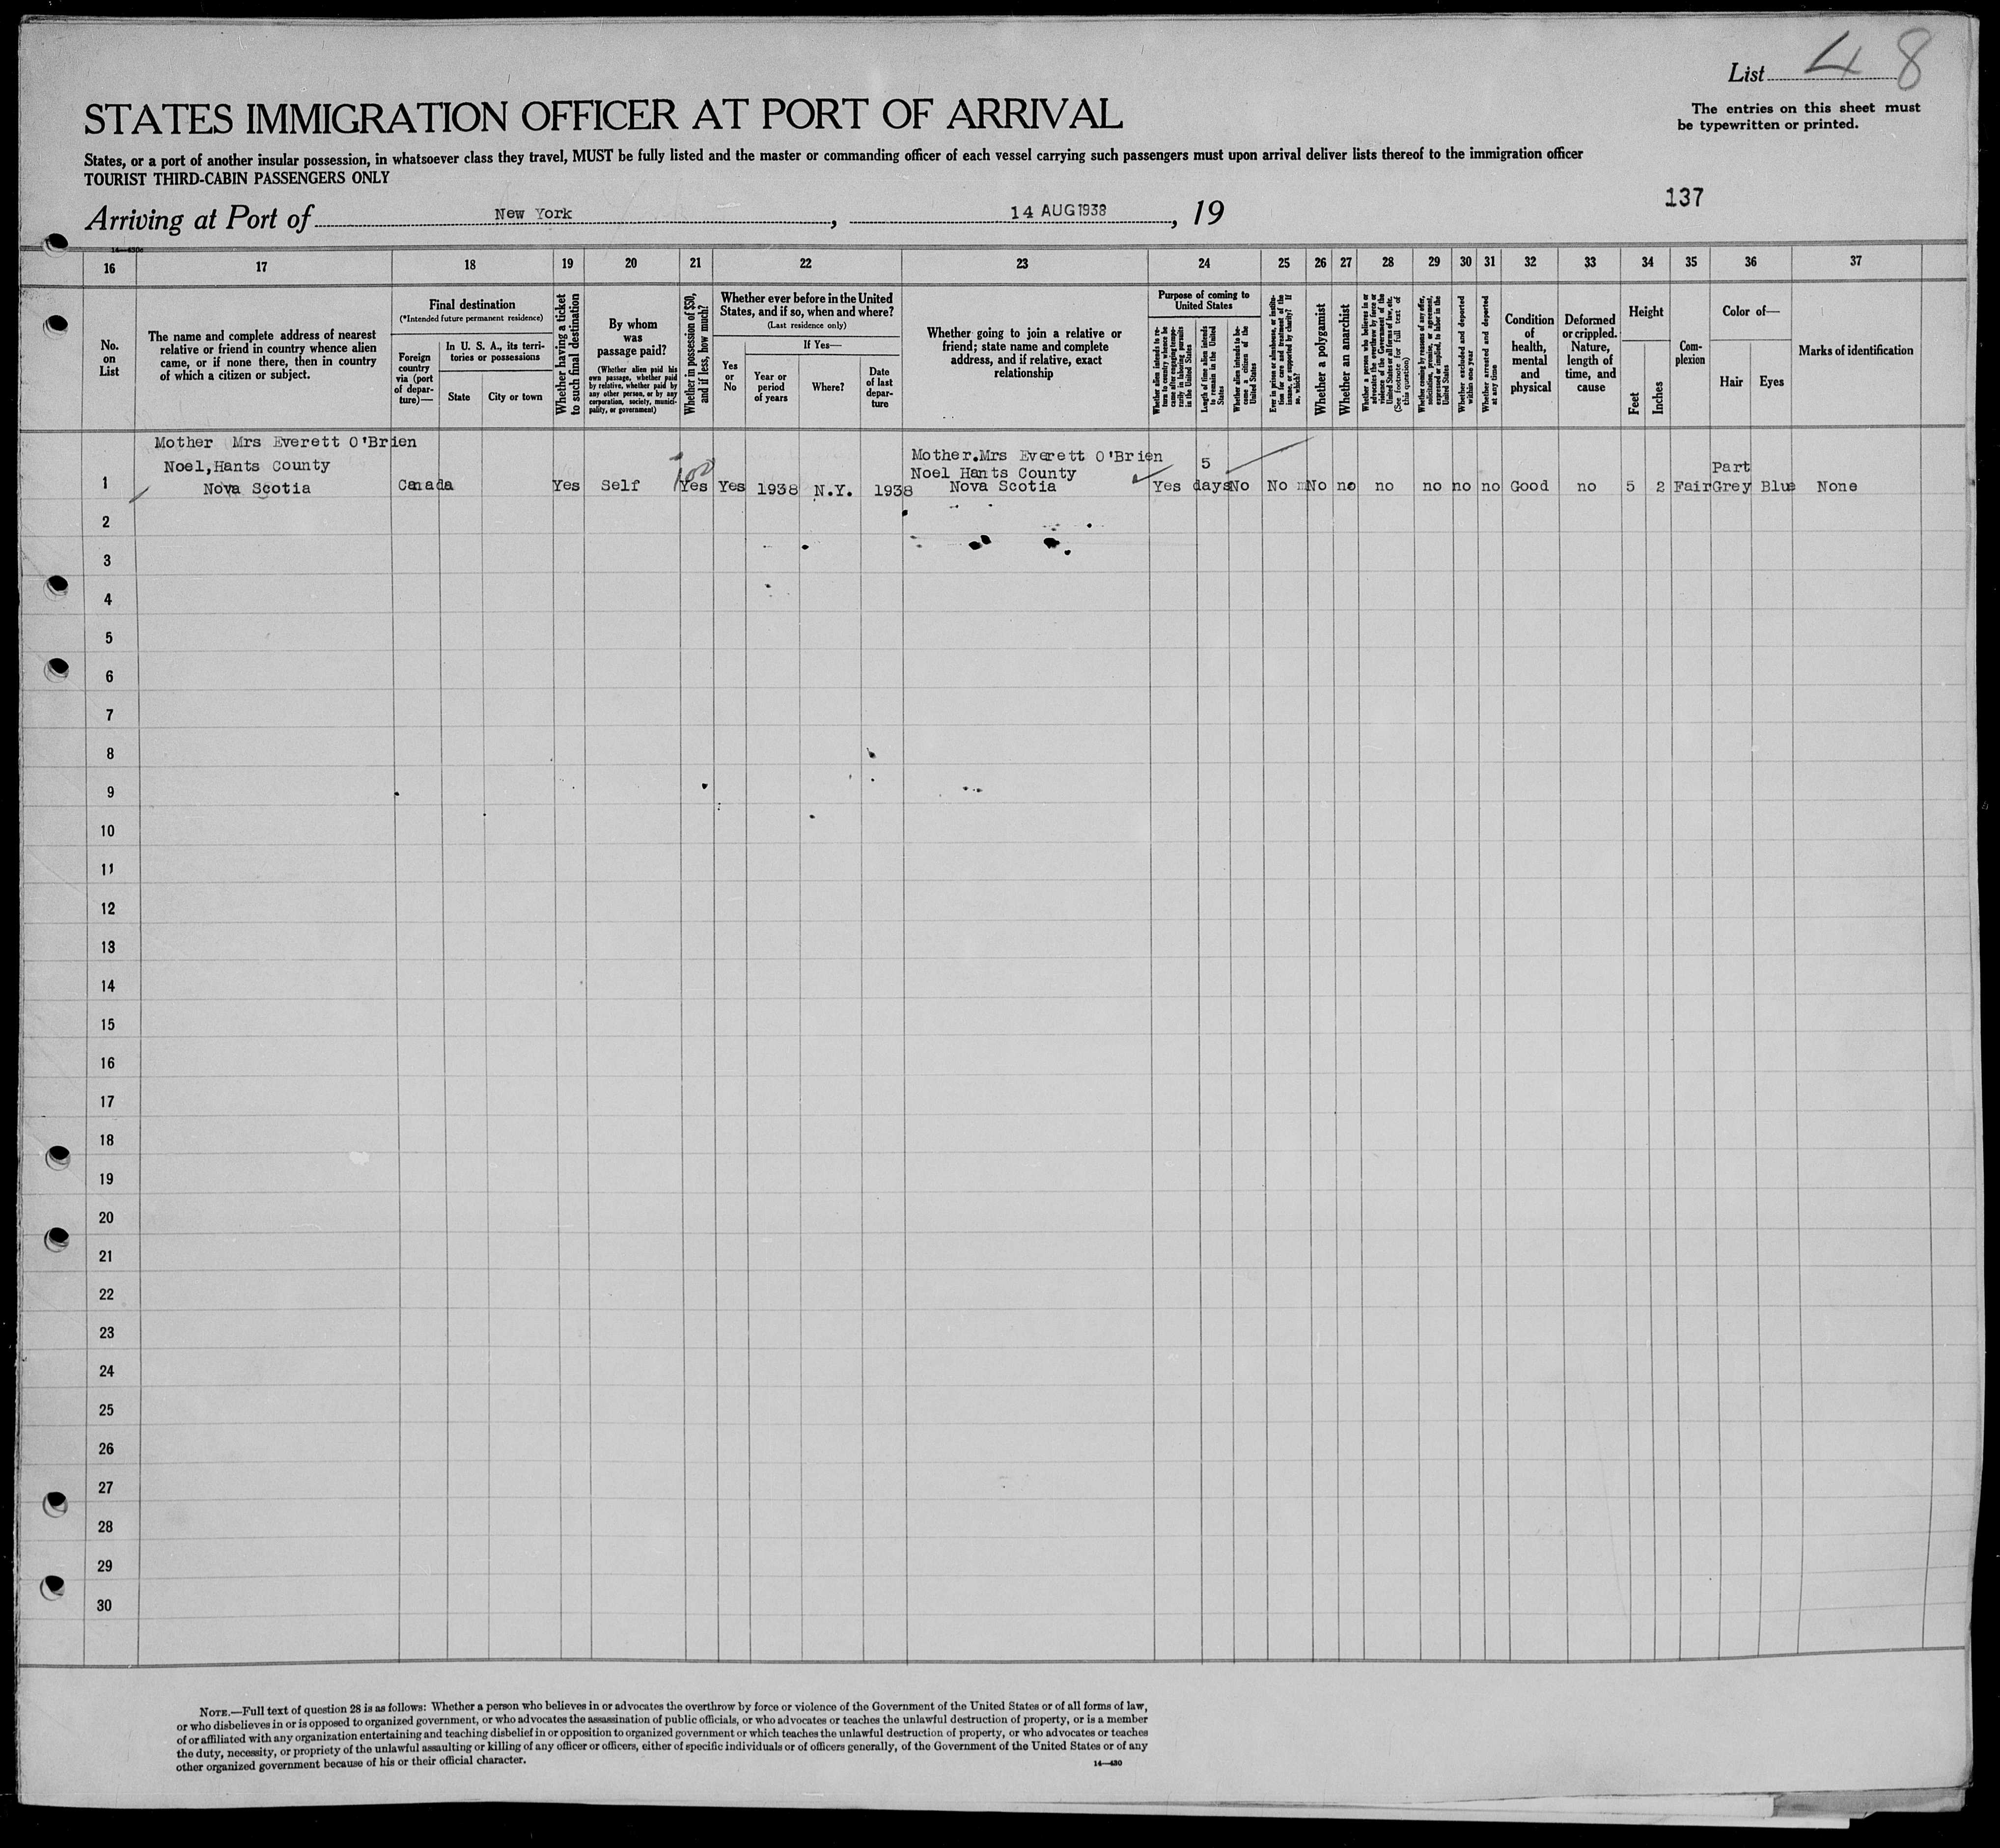 List 48
The entries on this sheet must
be typewritten or printed.
STATES IMMIGRATION OFFICER AT PORT OF ARRIVAL
States, or a port of another insular possession, in whatsoever class they travel, MUST be fully listed and the master or commanding officer of each vessel carrying such passengers must upon arrival deliver lists thereof to the immigration officer
TOURIST THIRD-CABIN PASSENGERS ONLY
137
Arriving at Port of New York, 14 AUG 1938, 19
16 17 18 19 20 21 22 23 24 25 26 27 28 29 30 31 32 33 34 35 36 37
No.
on
List
The name and complete address of nearest
relative or friend in country whence alien
came, or if none there, then in country
of which a citizen or subject.
Final destination
(*Intended future permanent residence)
Foreign
country
via (port
of depar-
ture)—
In U. S. A., its terri-
tories or possessions
State
City or town
Whether having a ticket
to such final destination
By whom
was
passage paid?
(Whether alien paid his
own passage, whether paid
by relative, whether paid by
any other person, or by any
corporation, society, munici-
pality, or government)
Whether in possession of $50,
and if less, how much?
Whether ever before in the United
States, and if so, when and where?
(Last residence only)
Yes
or
No
If Yes—
Year or
period
of years
Where?
Date
of last
depar-
ture
Whether going to join a relative or
friend; state name and complete
address, and if relative, exact
relationship
Purpose of coming to
United States
Whether alien intends to re-
turn to country whence he
came after engaging tempo-
rarily in laboring pursuits
in the United States
Length of time alien intends
to remain in the United
States
Whether alien intends to be-
come a citizen of the
United States
Ever in prison or almshouse, or institu-
tion for care and treatment of the
insane, or supported by charity? If
so, which?
Whether a polygamist
Whether an anarchist
Whether a person who believes in or
advocates the overthrow by force or
violence of the Government of the
United States or all forms of law, etc.
(See footnote for full text of
this question)
Whether coming by reasons of any offer,
solicitation, promise, or agreement,
expressed or implied, to labor in the
United States
Whether excluded and deported
within one year
Whether arrested and deported
at any time
Condition
of
health,
mental
and
physical
Deformed
or crippled.
Nature,
length of
time, and
cause
Height
Feet
Inches
Com-
plexion
Color of—
Hair
Eyes
Marks of identification
Mother Mrs Everett O'Brien
Noel, Hants County
Nova Scotia
1 Canada Yes Self 100 Yes Yes 1938 N.Y. 1938
Mother.Mrs Everett O'Brien
Noel Hants County
Nova Scotia
Yes 5 days No No No no no no no no Good no 5 2 Fair Part Grey Blue None
2
3
4
5
6
7
8
9
10
11
12
13
14
15
16
17
18
19
20
21
22
23
24
25
26
27
28
29
30
NOTE.—Full text of question 28 is as follows: Whether a person who believes in or advocates the overthrow by force or violence of the Government of the United States or of all forms of law,
or who disbelieves in or is opposed to organized government, or who advocates the assassination of public officials, or who advocates or teaches the unlawful destruction of property, or is a member
of or affiliated with any organization entertaining and teaching disbelief in or opposition to organized government or which teaches the unlawful destruction of property, or who advocates or teaches
the duty, necessity, or propriety of the unlawful assaulting or killing of any officer or officers, either of specific individuals or of officers generally, of the Government of the United States or of any
other organized government because of his or their official character.
14—430